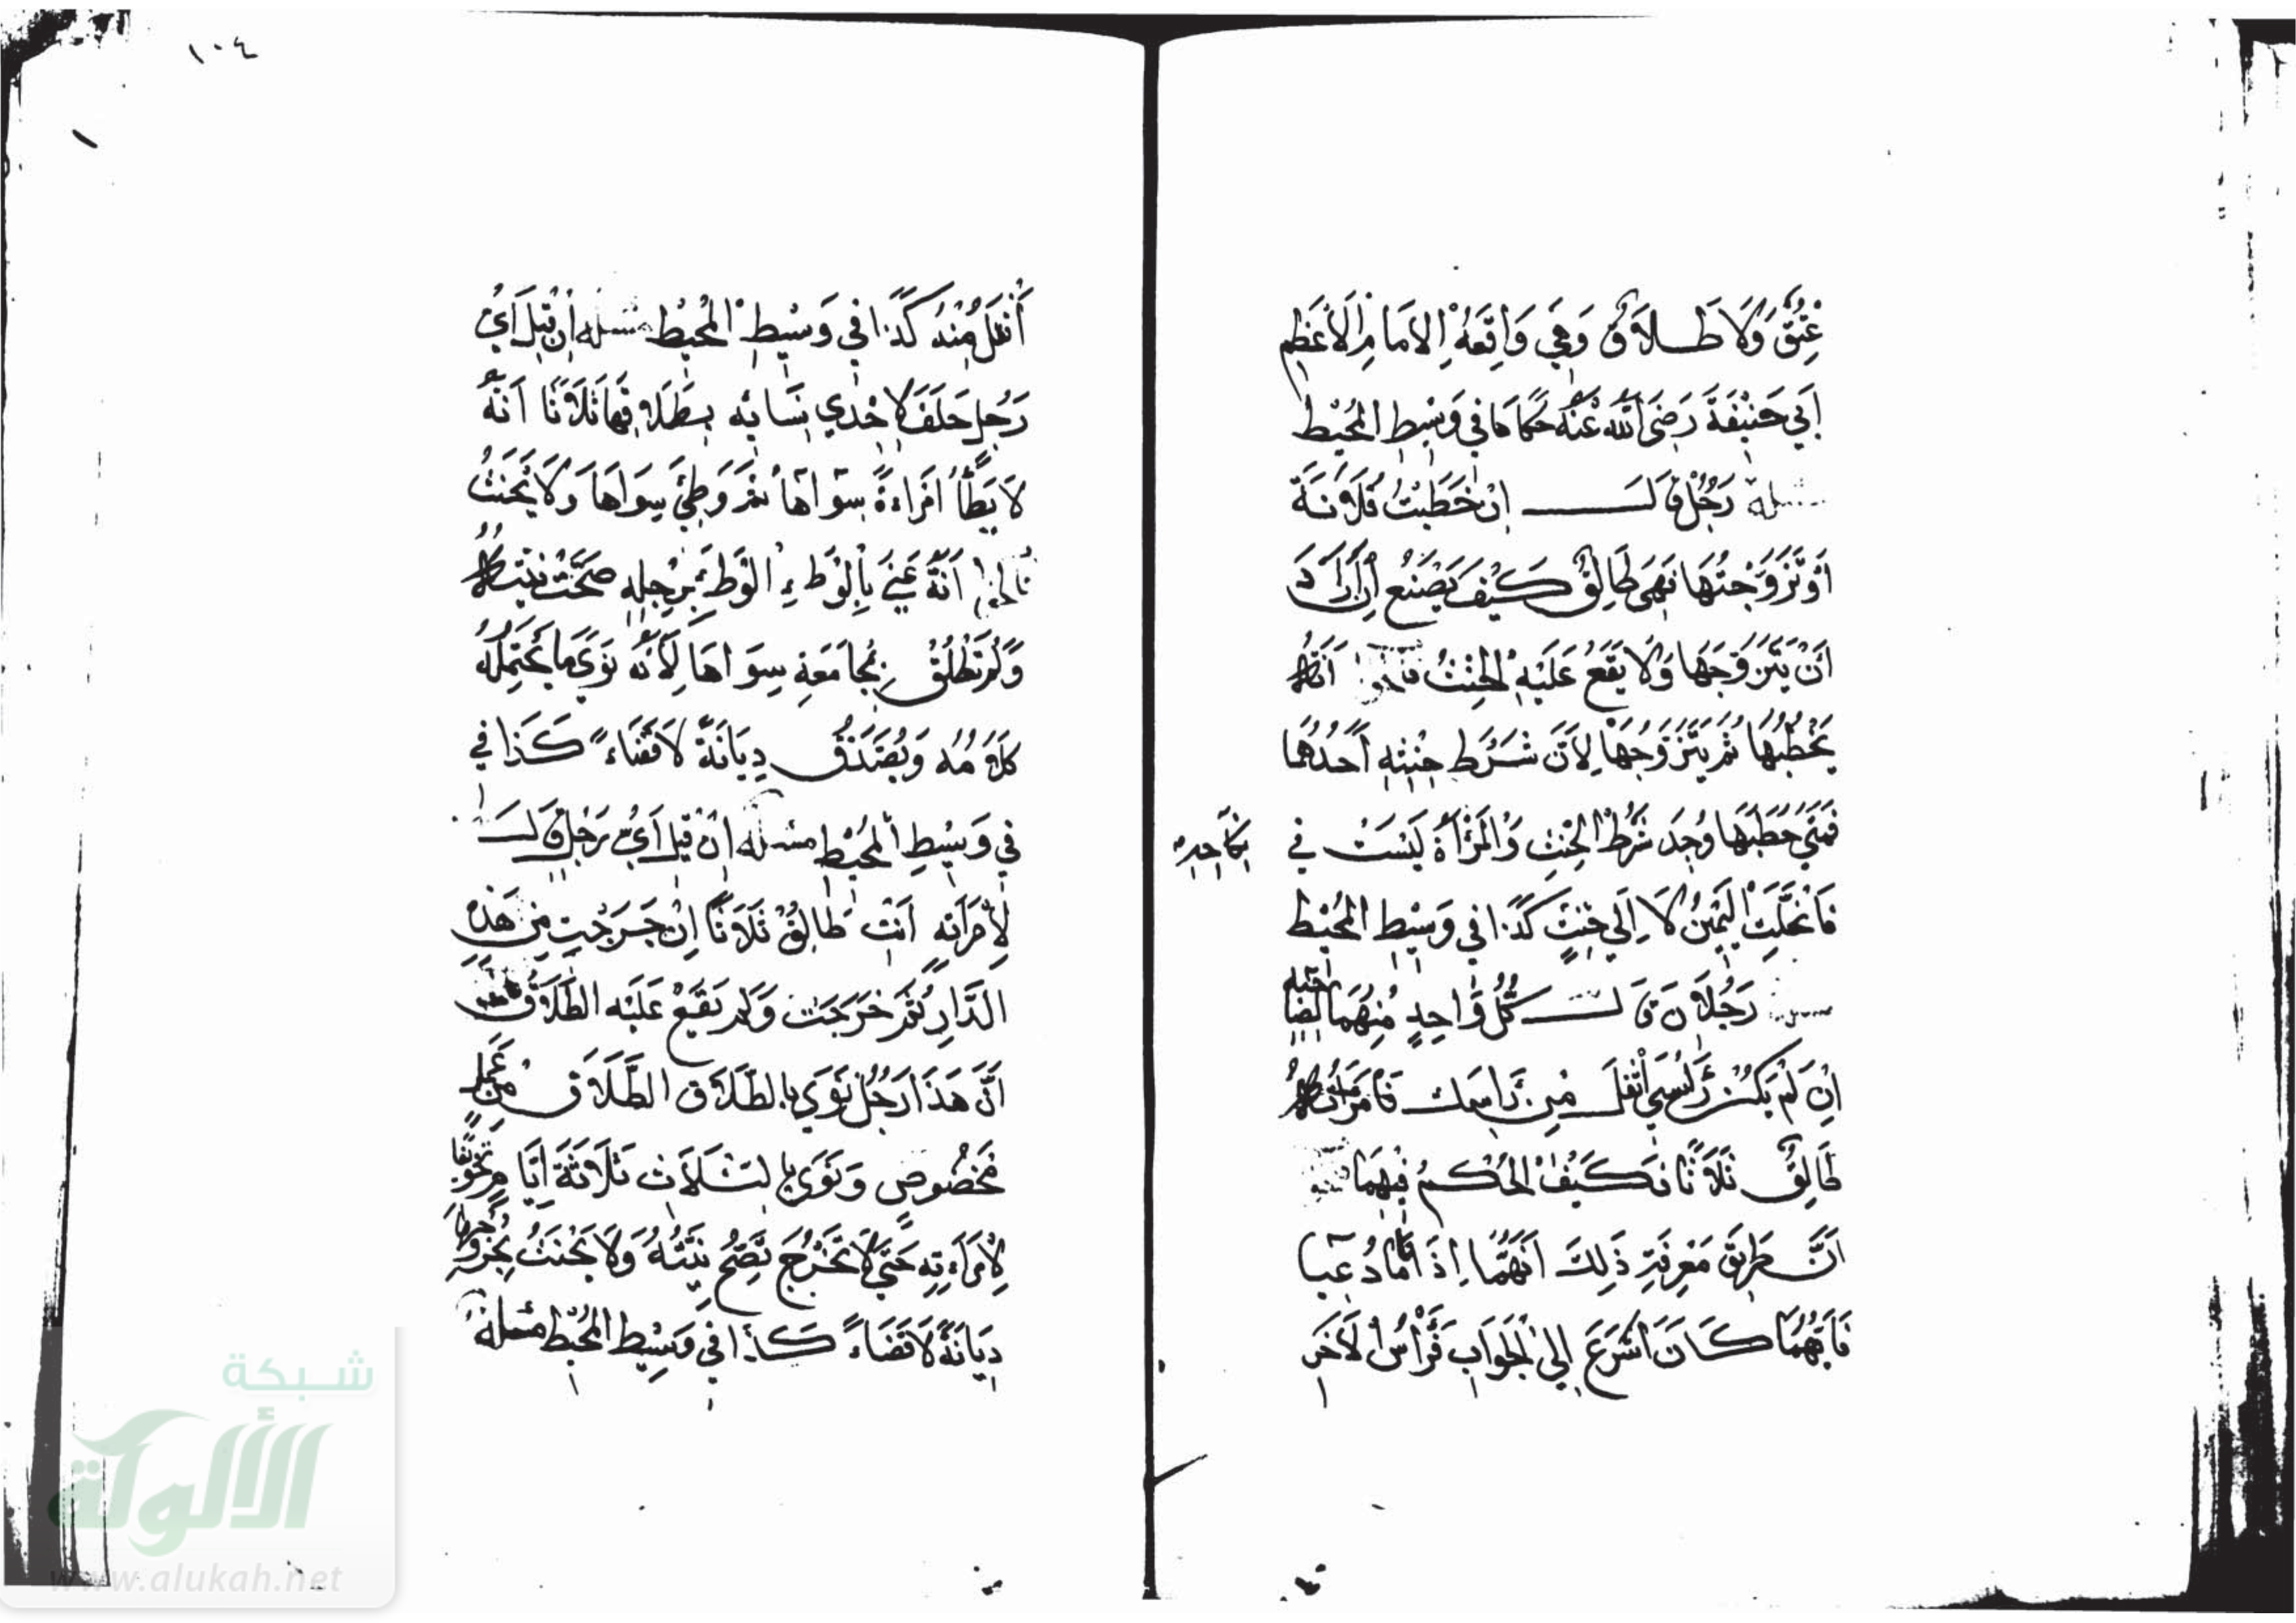 عِتْقٌ وَلَا طَلَاقٌ وَهِيَ وَاقِعَةُ الْاِمَامِ الْاَعْظَمِ
اَبِي حَنِيْفَةَ رَضِيَ اللّٰهُ عَنْهُ حَكَاهَا في وَسِيْطِ الْمُحِيْطِ
مسئلة رَجُلٌ قَالَ اِنْ خَطَبْتُ فُلَانَةَ
اَوْ تَزَوَّجْتُهَا فَهِىَ طَالِقٌ كَيْفَ يَصْنَعُ اِنْ اَرَادَ
اَنْ يَتَزَوَّجَهَا وَلَا يَقَعُ عَلَيْهِ الْحِنْثُ فالجواب اَنَّهُ
يَخْطُبُهَا ثُمَّ يَتَزَوَّجُهَا لِاَنَّ شَرْطَ حِنْثِهِ اَحَدُهُمَا
فَمَتَى خَطَبَهَا وُجِدَ شَرْطُ الْحِنْثِ وَالْمَرْأَةُ لَيْسَتْ في
نكاحه
فَانْحَلَّتِ الْيَمِيْنُ لَا اِلَى حِنْثٍ كَذَا في وَسِيْطِ الْمُحِيْطِ
مسئلة رَجُلَانِ قَالَ كُلُّ وَاحِدٍ مِنْهُمَا لِصَاحِبِهِ
اِنْ لَمْ يَكُنْ رَأْسِي اَثْقَلَ مِنْ رَاْسِكَ فَامْرَأَتُهُ
طَالِقٌ ثَلَاثًا فَكَيْفَ الْحُكْمُ فِيْهِمَا فالجواب
اَنَّ طَرِيْقَ مَعْرِفَةِ ذَلِكَ اَنَّهُمَا اِذَا نَامَا دُعِيَا
فَاَيُّهُمَا كَانَ اَسْرَعَ اِلَى الْجَوَابِ فَرَأْسُ الْاٰخَرِ
١٠٤
أَثْقَلُ مِنْهُ كَذَا في وَسِيْطِ الْمُحِيْطِ مسئلة اِنْ قِيْلَ اَيُّ
رَجُلٍ حَلَفَ لِاِحْدَى نِسَائِهِ بِطَلَاقِهَا ثَلَاثًا اَنَّهُ
لَا يَطَأُ امْرَاءَةً سِوَاهَا ثُمَّ وَطِئَ سِوَاهَا وَلَا يَحْنَثُ
فالجواب اَنَّهُ عَنَى بِالْوَطْءِ الْوَطْءَ بِرِجْلِهِ صَحَّتْ نِيَّتُهُ
وَلَمْ تَطْلُقْ بِمُجَامَعَةِ سِوَاهَا لِاَنَّهُ نَوَى مَا يَحْتَمِلُهُ
كَلَامُهُ وَيُصَدَّقُ دِيَانَةً لَا قَضَاءً كَذَا في
في وَسِيْطِ الْمُحِيْطِ مسئلة اِنْ قِيْلَ اَيُّ رَجُلٍ قَالَ
لِاِمْرَأَتِهِ اَنْتِ طَالِقٌ ثَلَاثًا اِنْ خَرَجْتِ مِنْ هَذِهِ
الدَّارِ ثُمَّ خَرَجَتْ وَلَمْ يَقَعْ عَلَيْهِ الطَّلَاقُ
اَنَّ هَذَا رَجُلٌ نَوَى بِالطَّلَاقِ الطَّلَاقَ مِنْ عَمَلٍ
مَخْصُوصٍ وَنَوَى بِالثَّلَاثِ ثَلَاثَةَ اَيَّامٍ تَخْوِيْفًا
لِاِمْرَاءَتِهِ حَتَّى لَا تَخْرُجَ تَصِحُّ نِيَّتُهُ وَلَا يَحْنَثُ بِخُرُوجِهَا
دِيَانَةً لَا قَضَاءً كَذَا في وَسِيْطِ الْمُحِيْطِ مسئلة
شبكة
الألوكة
www.alukah.net